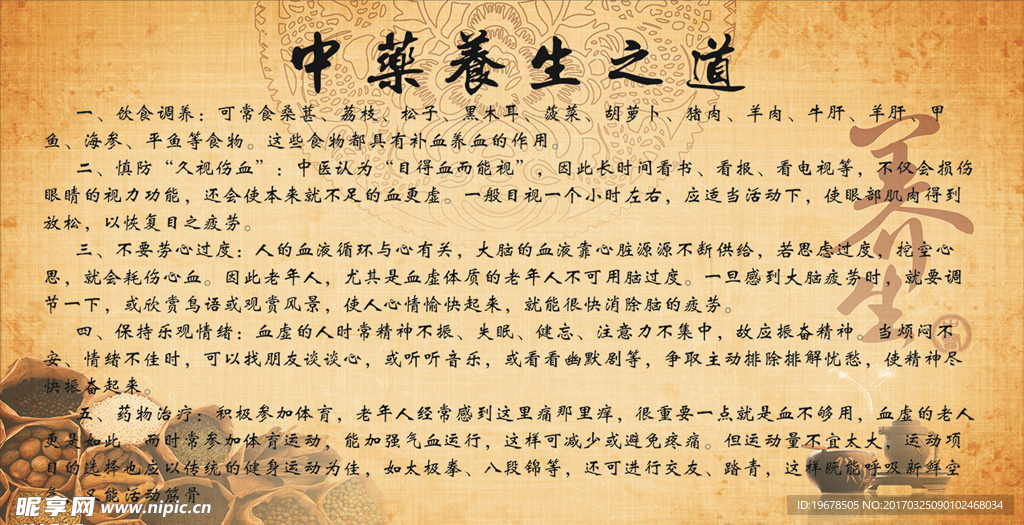 中藥養生之道
一、饮食调养：可常食桑葚、荔枝、松子、黑木耳、菠菜、胡萝卜、猪肉、羊肉、牛肝、羊肝、甲
鱼、海参、平鱼等食物。这些食物都具有补血养血的作用。
二、慎防“久视伤血”：中医认为“目得血而能视”，因此长时间看书、看报、看电视等，不仅会损伤
眼睛的视力功能，还会使本来就不足的血更虚。一般目视一个小时左右，应适当活动下，使眼部肌肉得到
放松，以恢复目之疲劳。
三、不要劳心过度：人的血液循环与心有关，大脑的血液靠心脏源源不断供给，若思虑过度，挖空心
思，就会耗伤心血。因此老年人，尤其是血虚体质的老年人不可用脑过度。一旦感到大脑疲劳时，就要调
节一下，或欣赏鸟语或观赏风景，使人心情愉快起来，就能很快消除脑的疲劳。
四、保持乐观情绪：血虚的人时常精神不振、失眠、健忘、注意力不集中，故应振奋精神。当烦闷不
安、情绪不佳时，可以找朋友谈谈心，或听听音乐，或看看幽默剧等，争取主动排除排解忧愁，使精神尽
快振奋起来。
五、药物治疗：积极参加体育，老年人经常感到这里痛那里痒，很重要一点就是血不够用，血虚的老人
更是如此，而时常参加体育运动，能加强气血运行，这样可减少或避免疼痛。但运动量不宜太大，运动项
目的选择也应以传统的健身运动为佳，如太极拳、八段锦等，还可进行交友、踏青，这样既能呼吸新鲜空
气，又能活动筋骨
养生
昵享网 www.nipic.cn
ID:19678505 NO:20170325090102468034